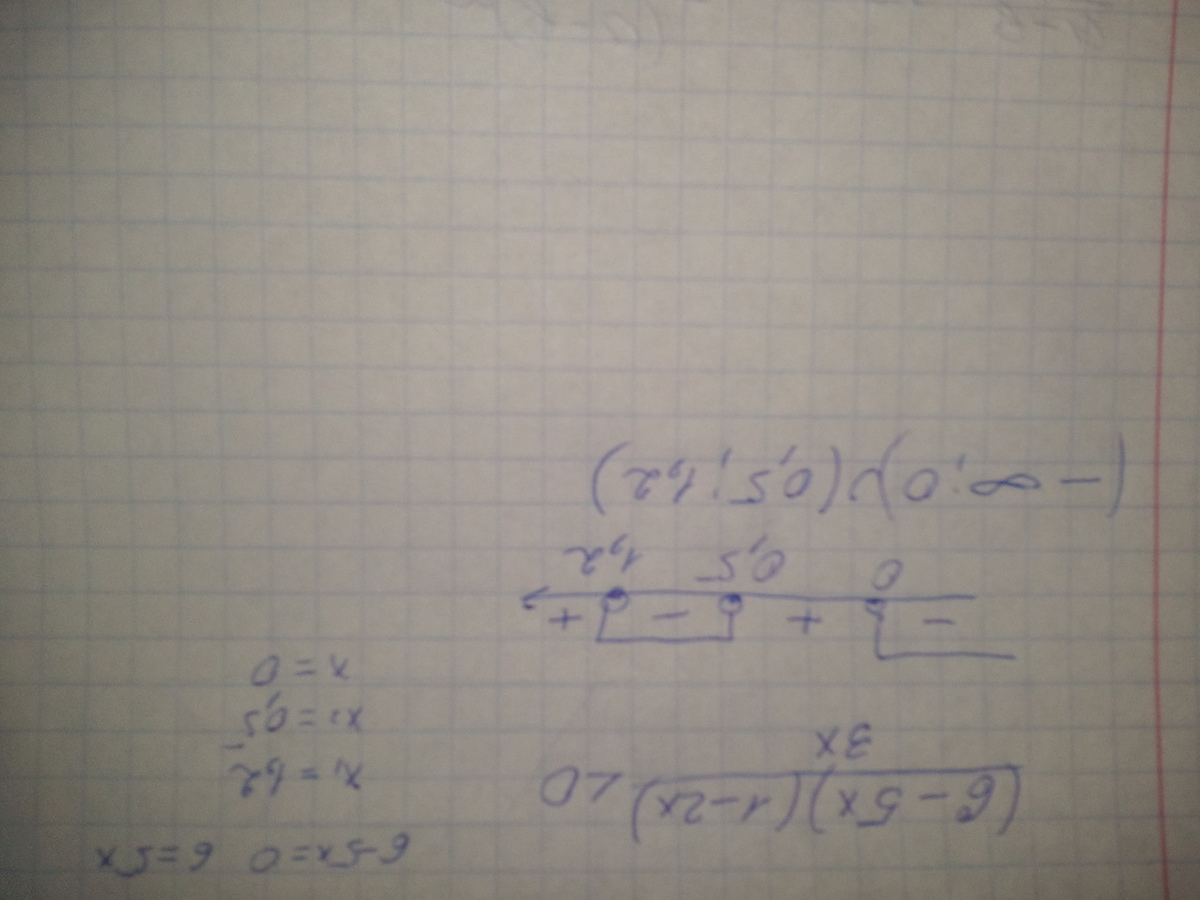 6-5x=0 6=5x
(6-5x)(1-2x) <0
3x
x₁ = 1,2
x₂ = 0,5
x = 0
- + - +
0 0,5 1,2
(-∞;0)∪(0,5;1,2)